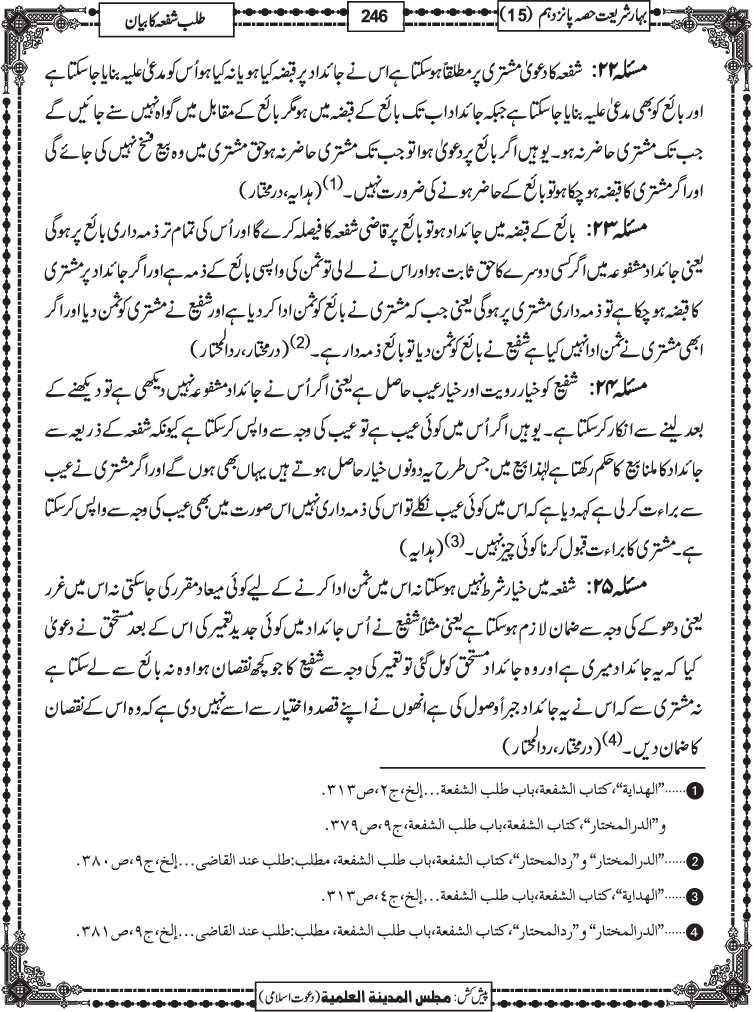 بہار شریعت حصہ پانزدہم (15)
246
طلب شفعہ کا بیان
مسئلہ ۲۲: شفعہ کا دعویٰ مشتری پر مطلقاً ہوسکتا ہے اس نے جائداد پر قبضہ کیا ہو یا نہ کیا ہو اُس کو مدعیٰ علیہ بنایا جاسکتا ہے
اور بائع کو بھی مدعیٰ علیہ بنایا جاسکتا ہے جبکہ جائداد اب تک بائع کے قبضہ میں ہو مگر بائع کے مقابل میں گواہ نہیں سنے جائیں گے
جب تک مشتری حاضر نہ ہو۔ یوہیں اگر بائع پر دعویٰ ہوا تو جب تک مشتری حاضر نہ ہو حق مشتری میں وہ بیع فسخ نہیں کی جائے گی
اور اگر مشتری کا قبضہ ہوچکا ہو تو بائع کے حاضر ہونے کی ضرورت نہیں۔(1) (ہدایہ، درمختار)
مسئلہ ۲۳: بائع کے قبضہ میں جائداد ہو تو بائع پر قاضی شفعہ کا فیصلہ کرے گا اور اُس کی تمام تر ذمہ داری بائع پر ہوگی
یعنی جائداد مشفوعہ میں اگر کسی دوسرے کا حق ثابت ہوا اور اس نے لے لی تو ثمن کی واپسی بائع کے ذمہ ہے اور اگر جائداد پر مشتری
کا قبضہ ہوچکا ہے تو ذمہ داری مشتری پر ہوگی یعنی جب کہ مشتری نے بائع کو ثمن ادا کردیا ہے اور شفیع نے مشتری کو ثمن دیا اور اگر
ابھی مشتری نے ثمن ادا نہیں کیا ہے شفیع نے بائع کو ثمن دیا تو بائع ذمہ دار ہے۔(2) (درمختار، ردالمحتار)
مسئلہ ۲۴: شفیع کو خیار رویت اور خیار عیب حاصل ہے یعنی اگر اُس نے جائداد مشفوعہ نہیں دیکھی ہے تو دیکھنے کے
بعد لینے سے انکار کرسکتا ہے۔ یوہیں اگر اُس میں کوئی عیب ہے تو عیب کی وجہ سے واپس کرسکتا ہے کیونکہ شفعہ کے ذریعہ سے
جائداد کا ملنا بیع کا حکم رکھتا ہے لہٰذا بیع میں جس طرح یہ دونوں خیار حاصل ہوتے ہیں یہاں بھی ہوں گے اور اگر مشتری نے عیب
سے براءت کرلی ہے کہہ دیا ہے کہ اس میں کوئی عیب نکلے تو اس کی ذمہ داری نہیں اس صورت میں بھی عیب کی وجہ سے واپس کرسکتا
ہے۔ مشتری کا براءت قبول کرنا کوئی چیز نہیں۔(3) (ہدایہ)
مسئلہ ۲۵: شفعہ میں خیار شرط نہیں ہوسکتا نہ اس میں ثمن ادا کرنے کے لیے کوئی میعاد مقرر کی جاسکتی نہ اس میں غرر
یعنی دھوکے کی وجہ سے ضمان لازم ہوسکتا ہے یعنی مثلاً شفیع نے اُس جائداد میں کوئی جدید تعمیر کی اس کے بعد مستحق نے دعویٰ
کیا کہ یہ جائداد میری ہے اور وہ جائداد مستحق کو مل گئی تو تعمیر کی وجہ سے شفیع کا جو کچھ نقصان ہوا وہ نہ بائع سے لے سکتا ہے
نہ مشتری سے کہ اس نے یہ جائداد جبراً وصول کی ہے انھوں نے اپنے قصد و اختیار سے اسے نہیں دی ہے کہ وہ اس کے نقصان
کا ضمان دیں۔(4) (درمختار، ردالمحتار)
1......”الهداية“، كتاب الشفعة، باب طلب الشفعة...إلخ، ج٢، ص٣١٣.
و”الدرالمختار“، كتاب الشفعة، باب طلب الشفعة، ج٩، ص٣٧٩.
2......”الدرالمختار“ و”ردالمحتار“، كتاب الشفعة، باب طلب الشفعة، مطلب: طلب عند القاضى...إلخ، ج٩، ص٣٨٠.
3......”الهداية“، كتاب الشفعة، باب طلب الشفعة...إلخ، ج٤، ص٣١٣.
4......”الدرالمختار“ و”ردالمحتار“، كتاب الشفعة، باب طلب الشفعة، مطلب: طلب عند القاضى...إلخ، ج٩، ص٣٨١.
پیش کش: مجلس المدينة العلمية (دعوت اسلامی)